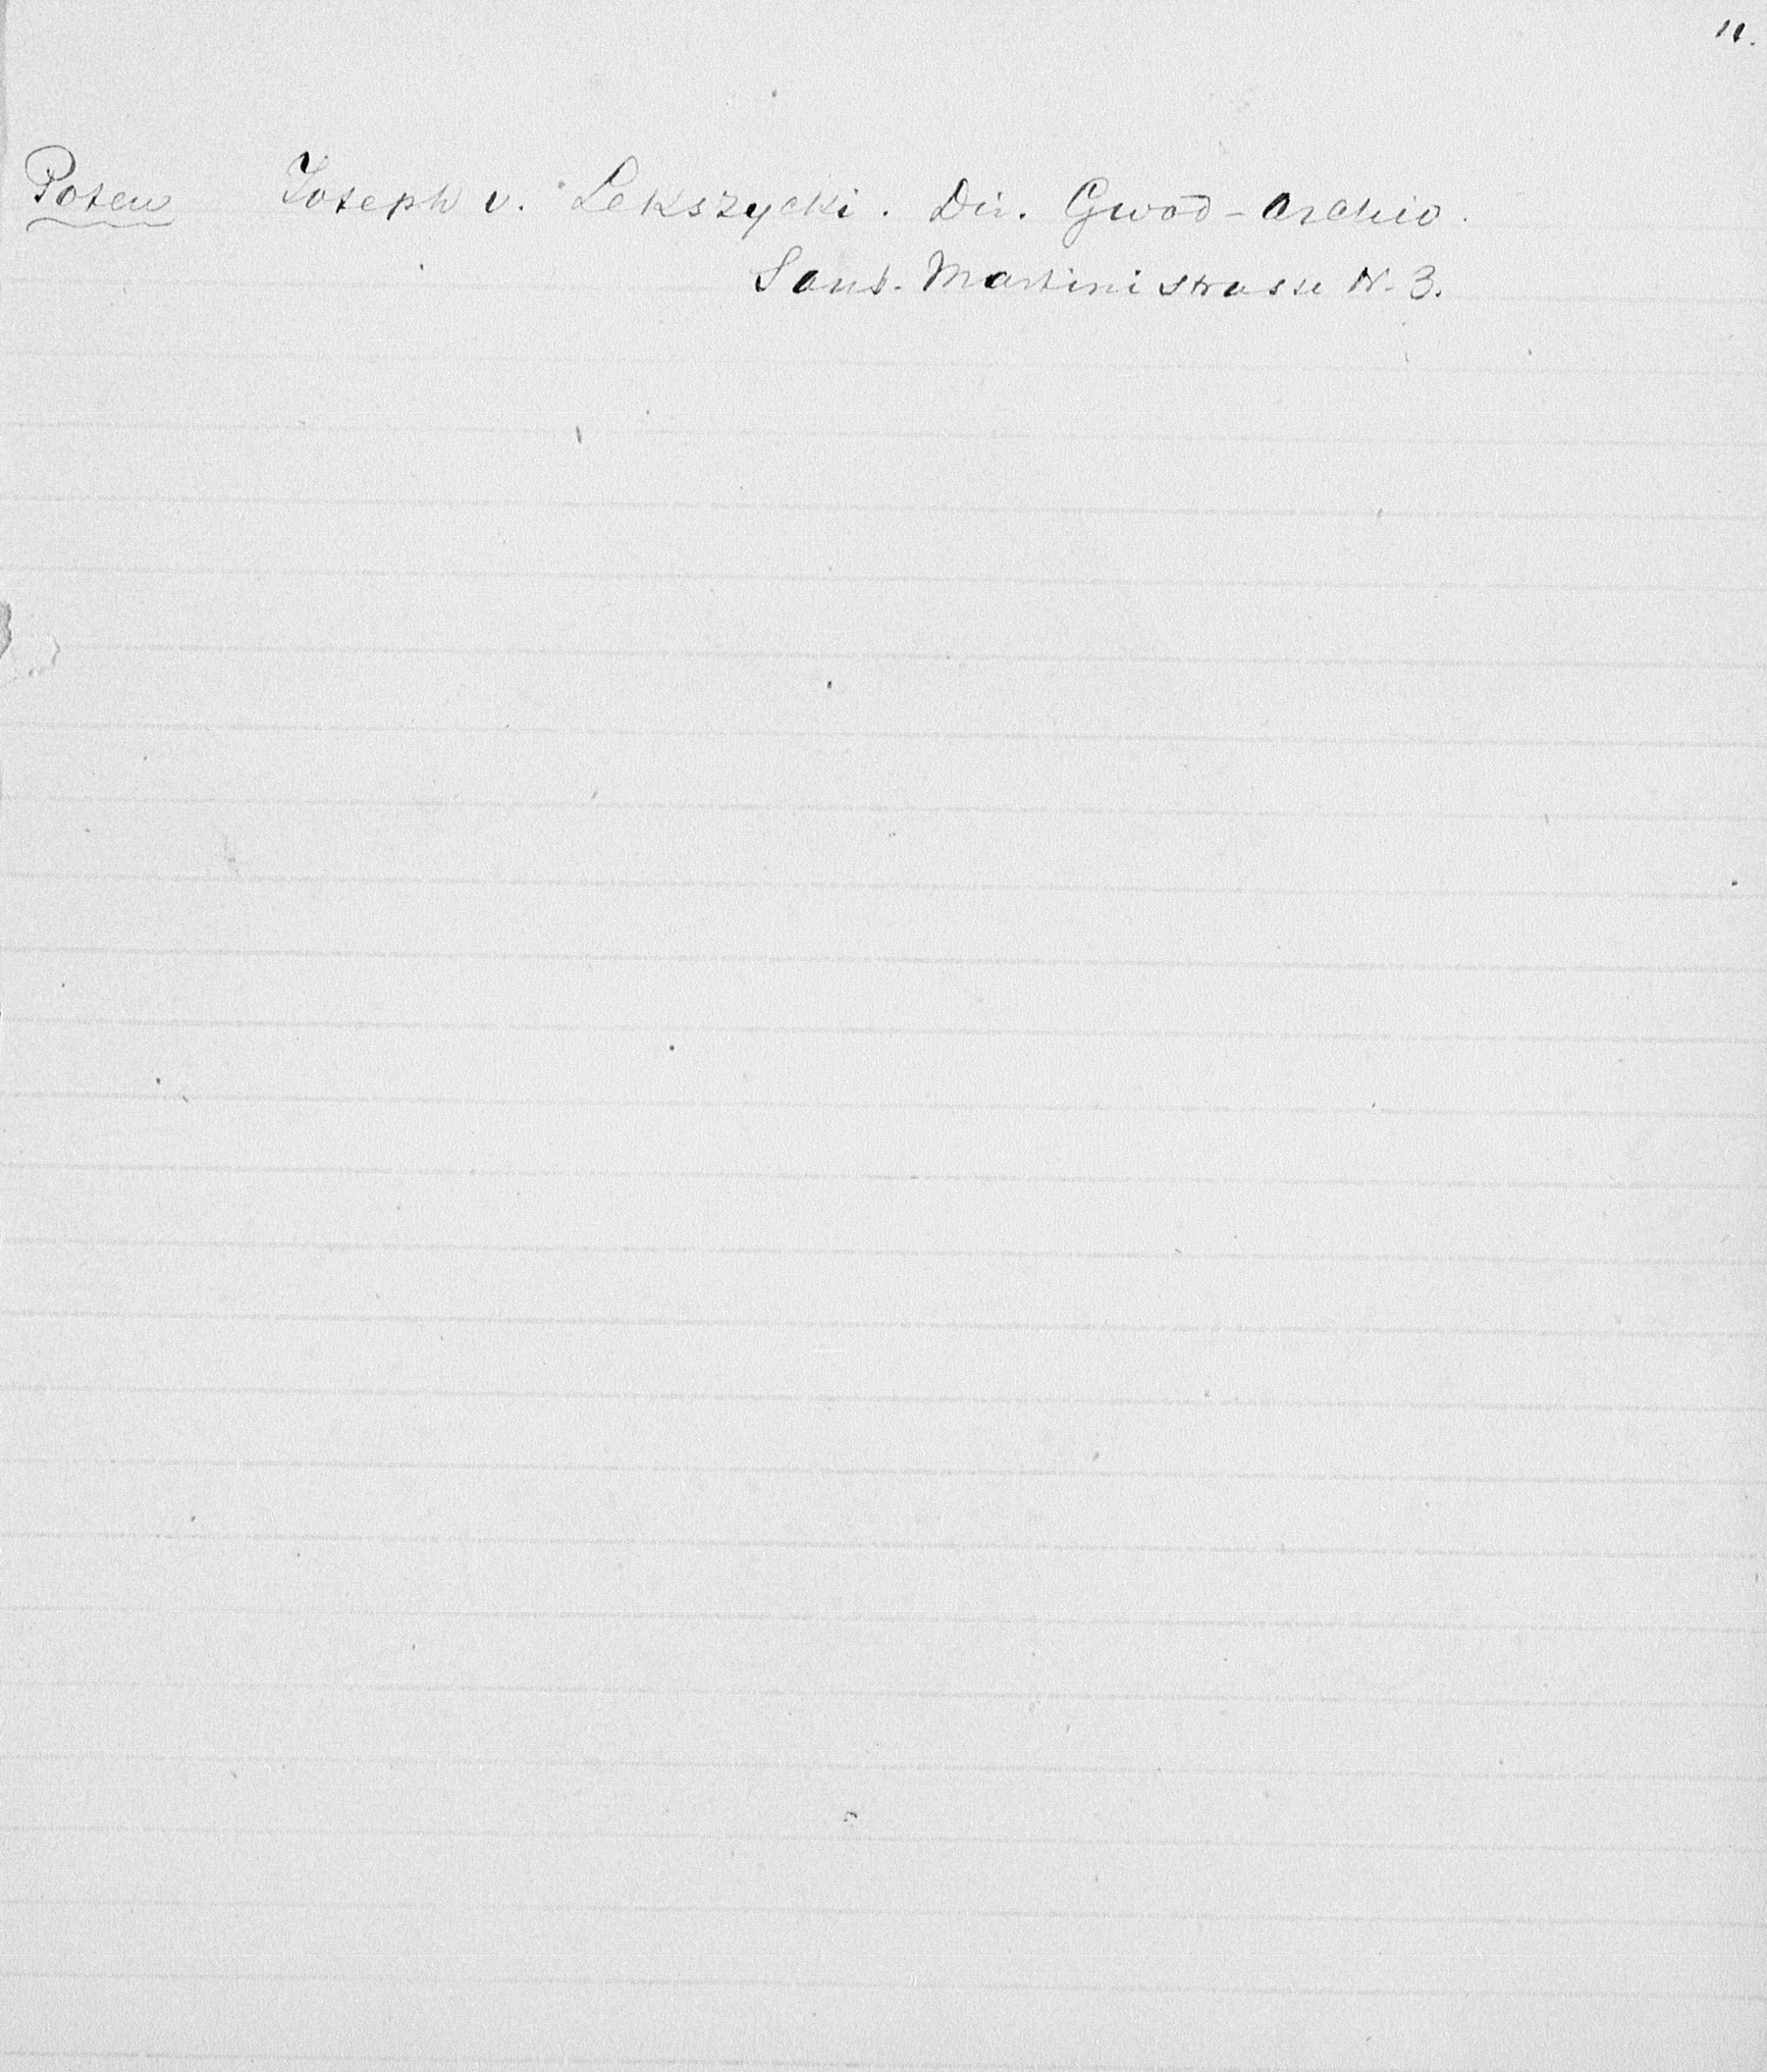 11.
Posen Joseph v. Lekszycki. Dir. Grod-Archiv.
Sanct. Martinistrasse N. 3.